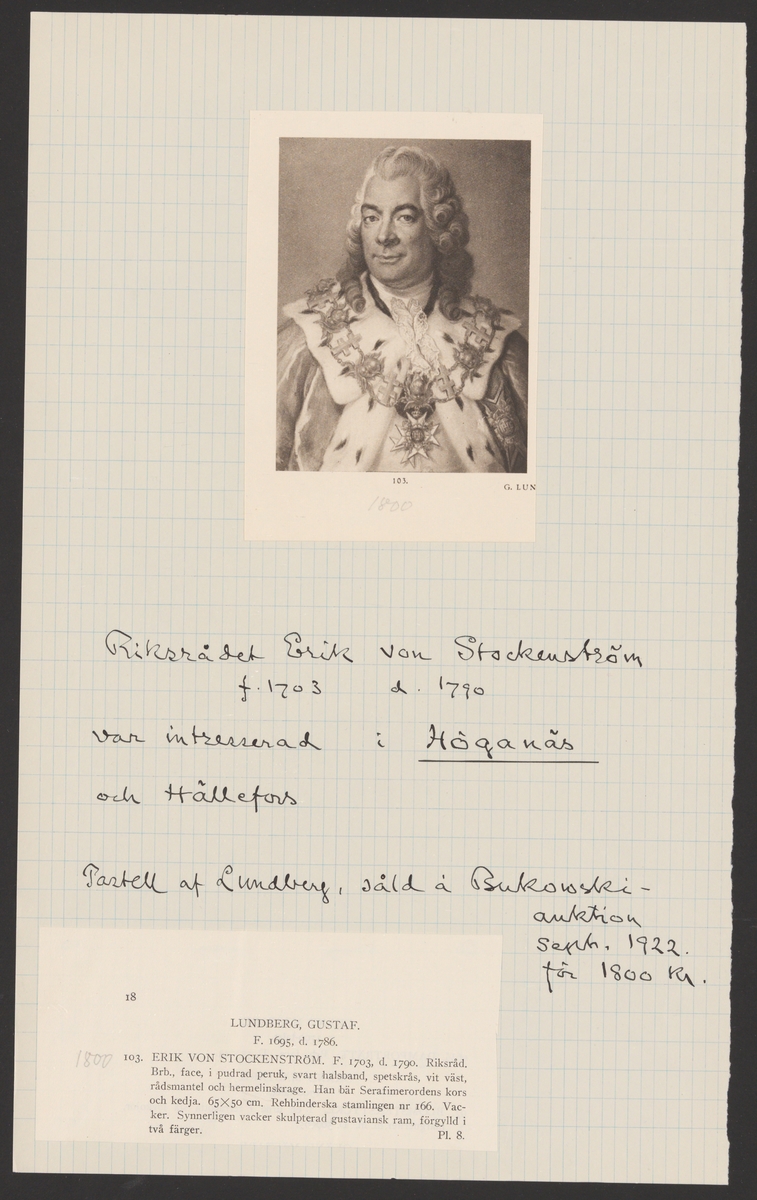 103.
G. LUN
1800
Riksrådet Erik von Stockenström
f. 1703 d. 1790
var intresserad i Höganäs
och Hällefors
Pastell af Lundberg, såld å Bukowski-
auktion
Sept. 1922.
för 1800 Kr.
18
LUNDBERG, GUSTAF.
F. 1695, d. 1786.
1800 103. ERIK VON STOCKENSTRÖM. F. 1703, d. 1790. Riksråd.
Brb., face, i pudrad peruk, svart halsband, spetskrås, vit väst,
rådsmantel och hermelinskrage. Han bär Serafimerordens kors
och kedja. 65×50 cm. Rehbinderska stamlingen nr 166. Vac-
ker. Synnerligen vacker skulpterad gustaviansk ram, förgylld i
två färger. Pl. 8.